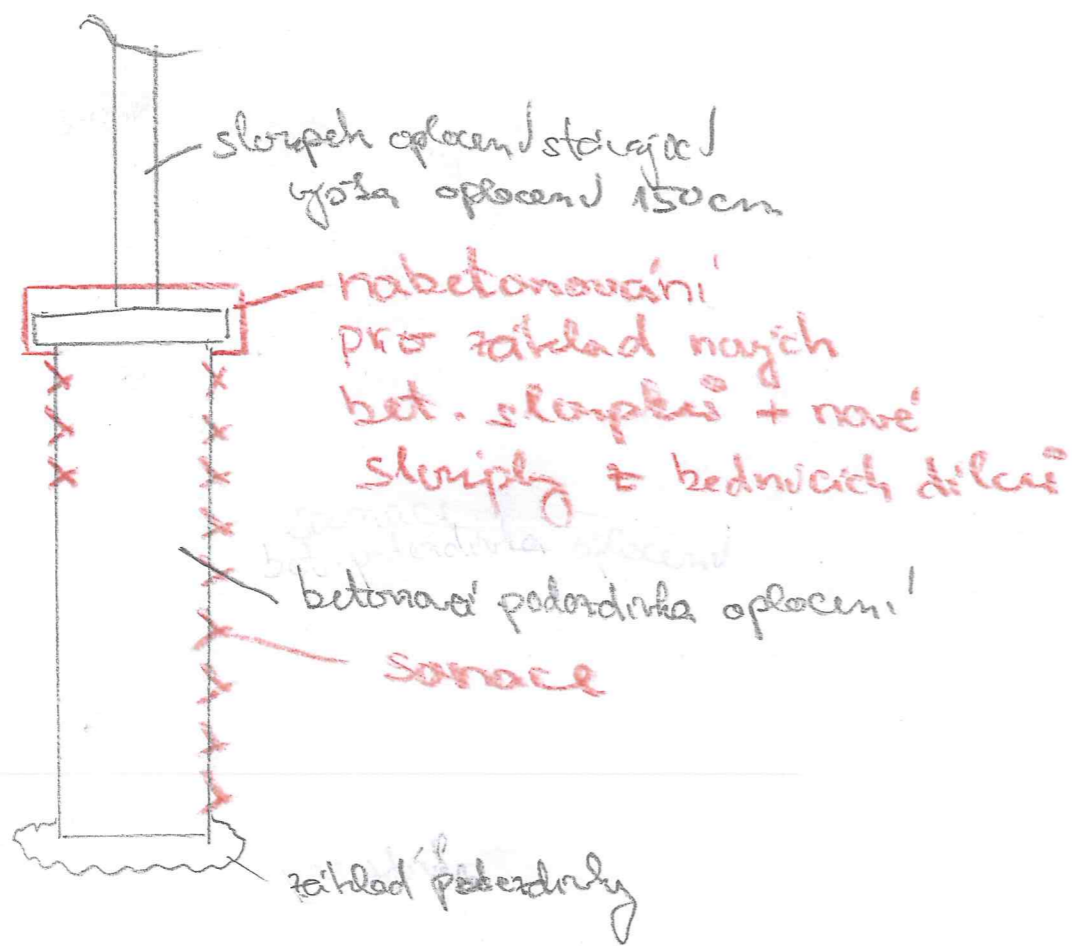 sloupek oplocení stávající
výška oplocení 150cm
nabetonování
pro základ nových
bet. sloupků + nové
sloupky z bednících dílců
betonová podezdívka oplocení
sanace
základ podezdívky